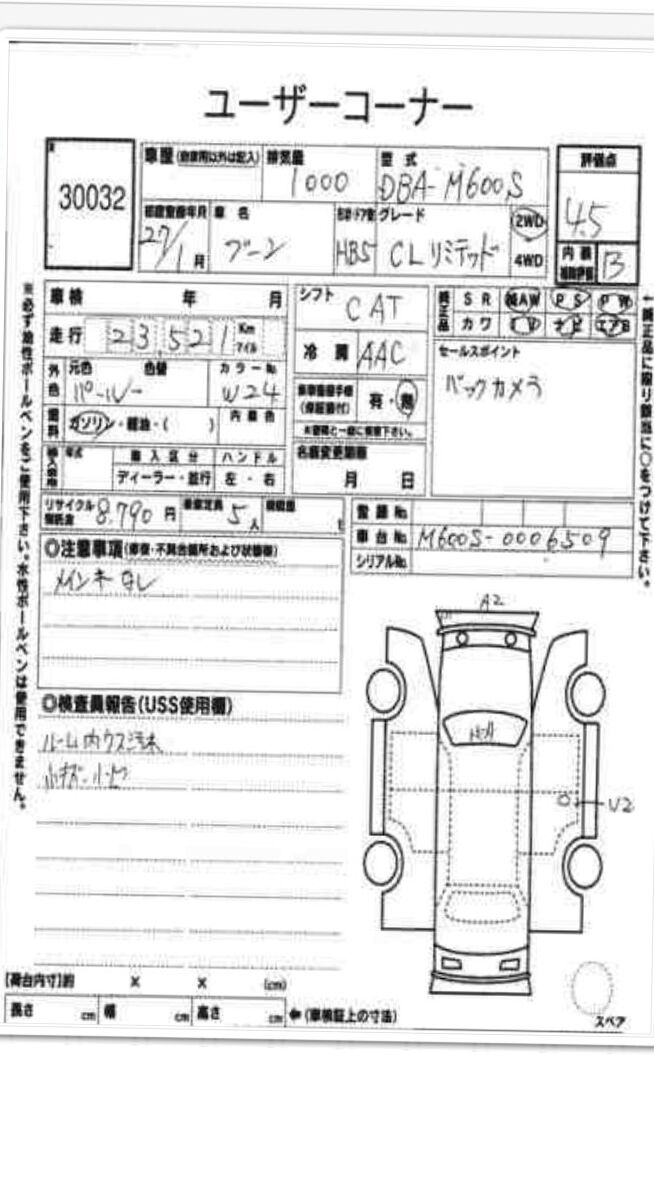 ユーザーコーナー
30032
車歴(自家用以外は記入)
排気量
1000
型式
DBA-M600S
評価点
4.5
初度登録年月
27/1月
車名
ブーン
形状・ドア数
HB5
グレード
CLリミテッド
2WD
4WD
内装
補助評価
B
車検 年 月
シフト
CAT
純正品
SR 純AW PS PW
カワ TV ナビ エアB
走行 23,521 Km マイル
冷房 AAC
セールスポイント
バックカメラ
外色
元色 色替 カラーNo.
パール W24
有・無
(保証書付)
燃料
ガソリン・軽油・( )
内装色
※書類と一緒に提出下さい。
輸入車
年式
輸入区分 ハンドル
ディーラー・並行 左・右
名義変更期限
月 日
リサイクル預託金 8,790円
乗車定員 5人
積載量 t
登録No.
車台No. M600S-0006509
シリアルNo.
◎注意事項(修復・不具合個所および状態等)
メインキーなし
◎検査員報告(USS使用欄)
ルーム内ウス汚れ
小キズ・小凹
A2
U2
【荷台内寸】約 × × (cm)
長さ cm 幅 cm 高さ cm ←(車検証上の寸法)
スペア
※必ず油性ボールペンをご使用下さい。水性ボールペンは使用できません。
←純正品に限り該当に○をつけて下さい。